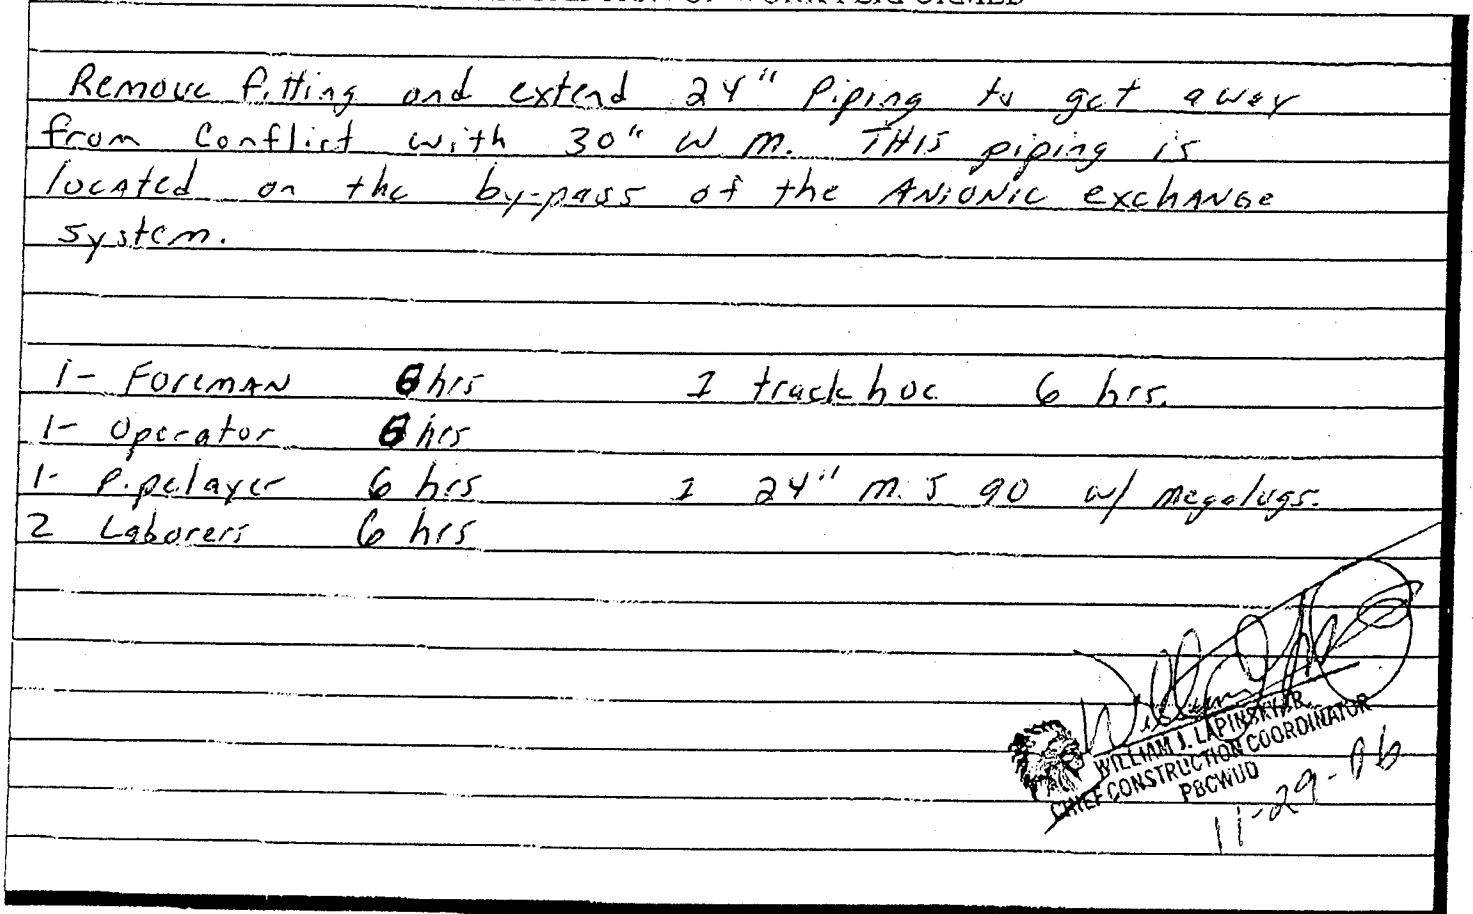 Remove fitting and extend 24" Piping to get away
from Conflict with 30" W M. THIS piping is
located on the by-pass of the ANiONic exchANGe
system.
1- ForemAN 6 hrs 1 trackhoe 6 hrs.
1- Operator 6 hrs
1- Pipelayer 6 hrs 1 24" M. J 90 w/ megalugs.
2 Laborers 6 hrs
WILLIAM J. LAPINSKY JR.
CHIEF CONSTRUCTION COORDINATOR
PBCWUD
11-29-06